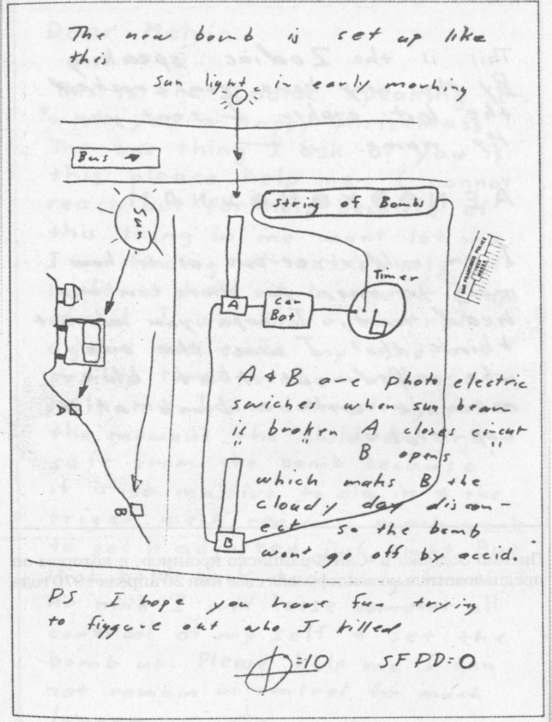 The new bomb is set up like
this
Sun light in early morning
Bus
Sun
String of Bombs
A
Car
Bat
Timer
A & B are photo electric
swiches when sun beam
is broken A closes cicut
" " " B opens "
which maks B the
cloudy day discon-
ect so the bomb
wont go off by accid.
A
B
B
PS I hope you have fun trying
to figgure out who I killed
=10 SFPD=0